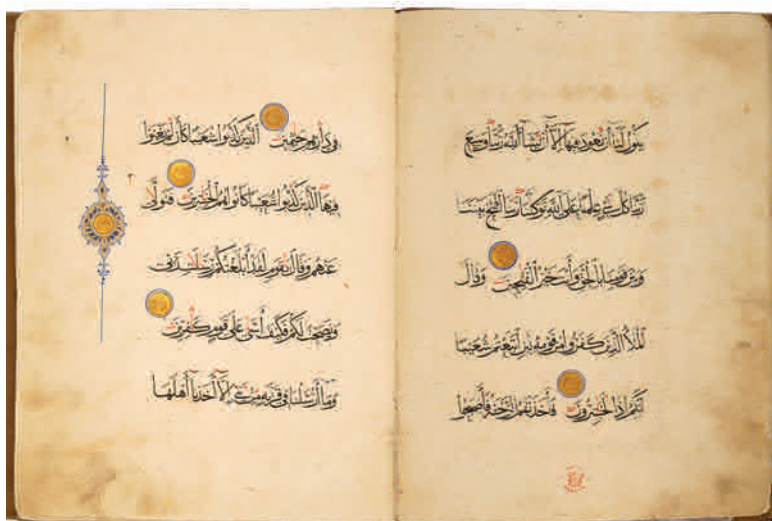 يكون لنا أن نعود فيها إلا أن يشاء الله ربنا وسع
ربنا كل شيء علما على الله توكلنا ربنا افتح بيننا
وبين قومنا بالحق وأنت خير الفتحين وقال
الملأ الذين كفروا من قومه لئن اتبعتم شعيبا
إنكم إذا لخسرون فأخذتهم الرجفة فأصبحوا
في دارهم جثمين الذين كذبوا شعيبا كأن لم يغنوا
فيها الذين كذبوا شعيبا كانوا هم الخسرين فتولى
عنهم وقال يقوم لقد أبلغتكم رسلت ربي
ونصحت لكم فكيف آسى على قوم كفرين
وما أرسلنا في قرية من نبي إلا أخذنا أهلها